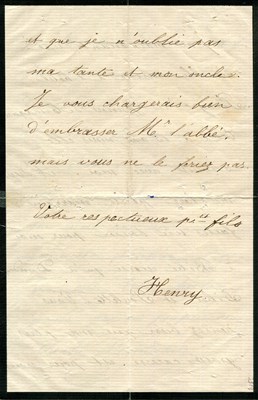 et que je n'oublie pas
ma tante et mon oncle.
Je vous chargerais bien
d'embrasser Mr l'abbé,
mais vous ne le feriez pas.
Votre respectueux pit fils
Henry